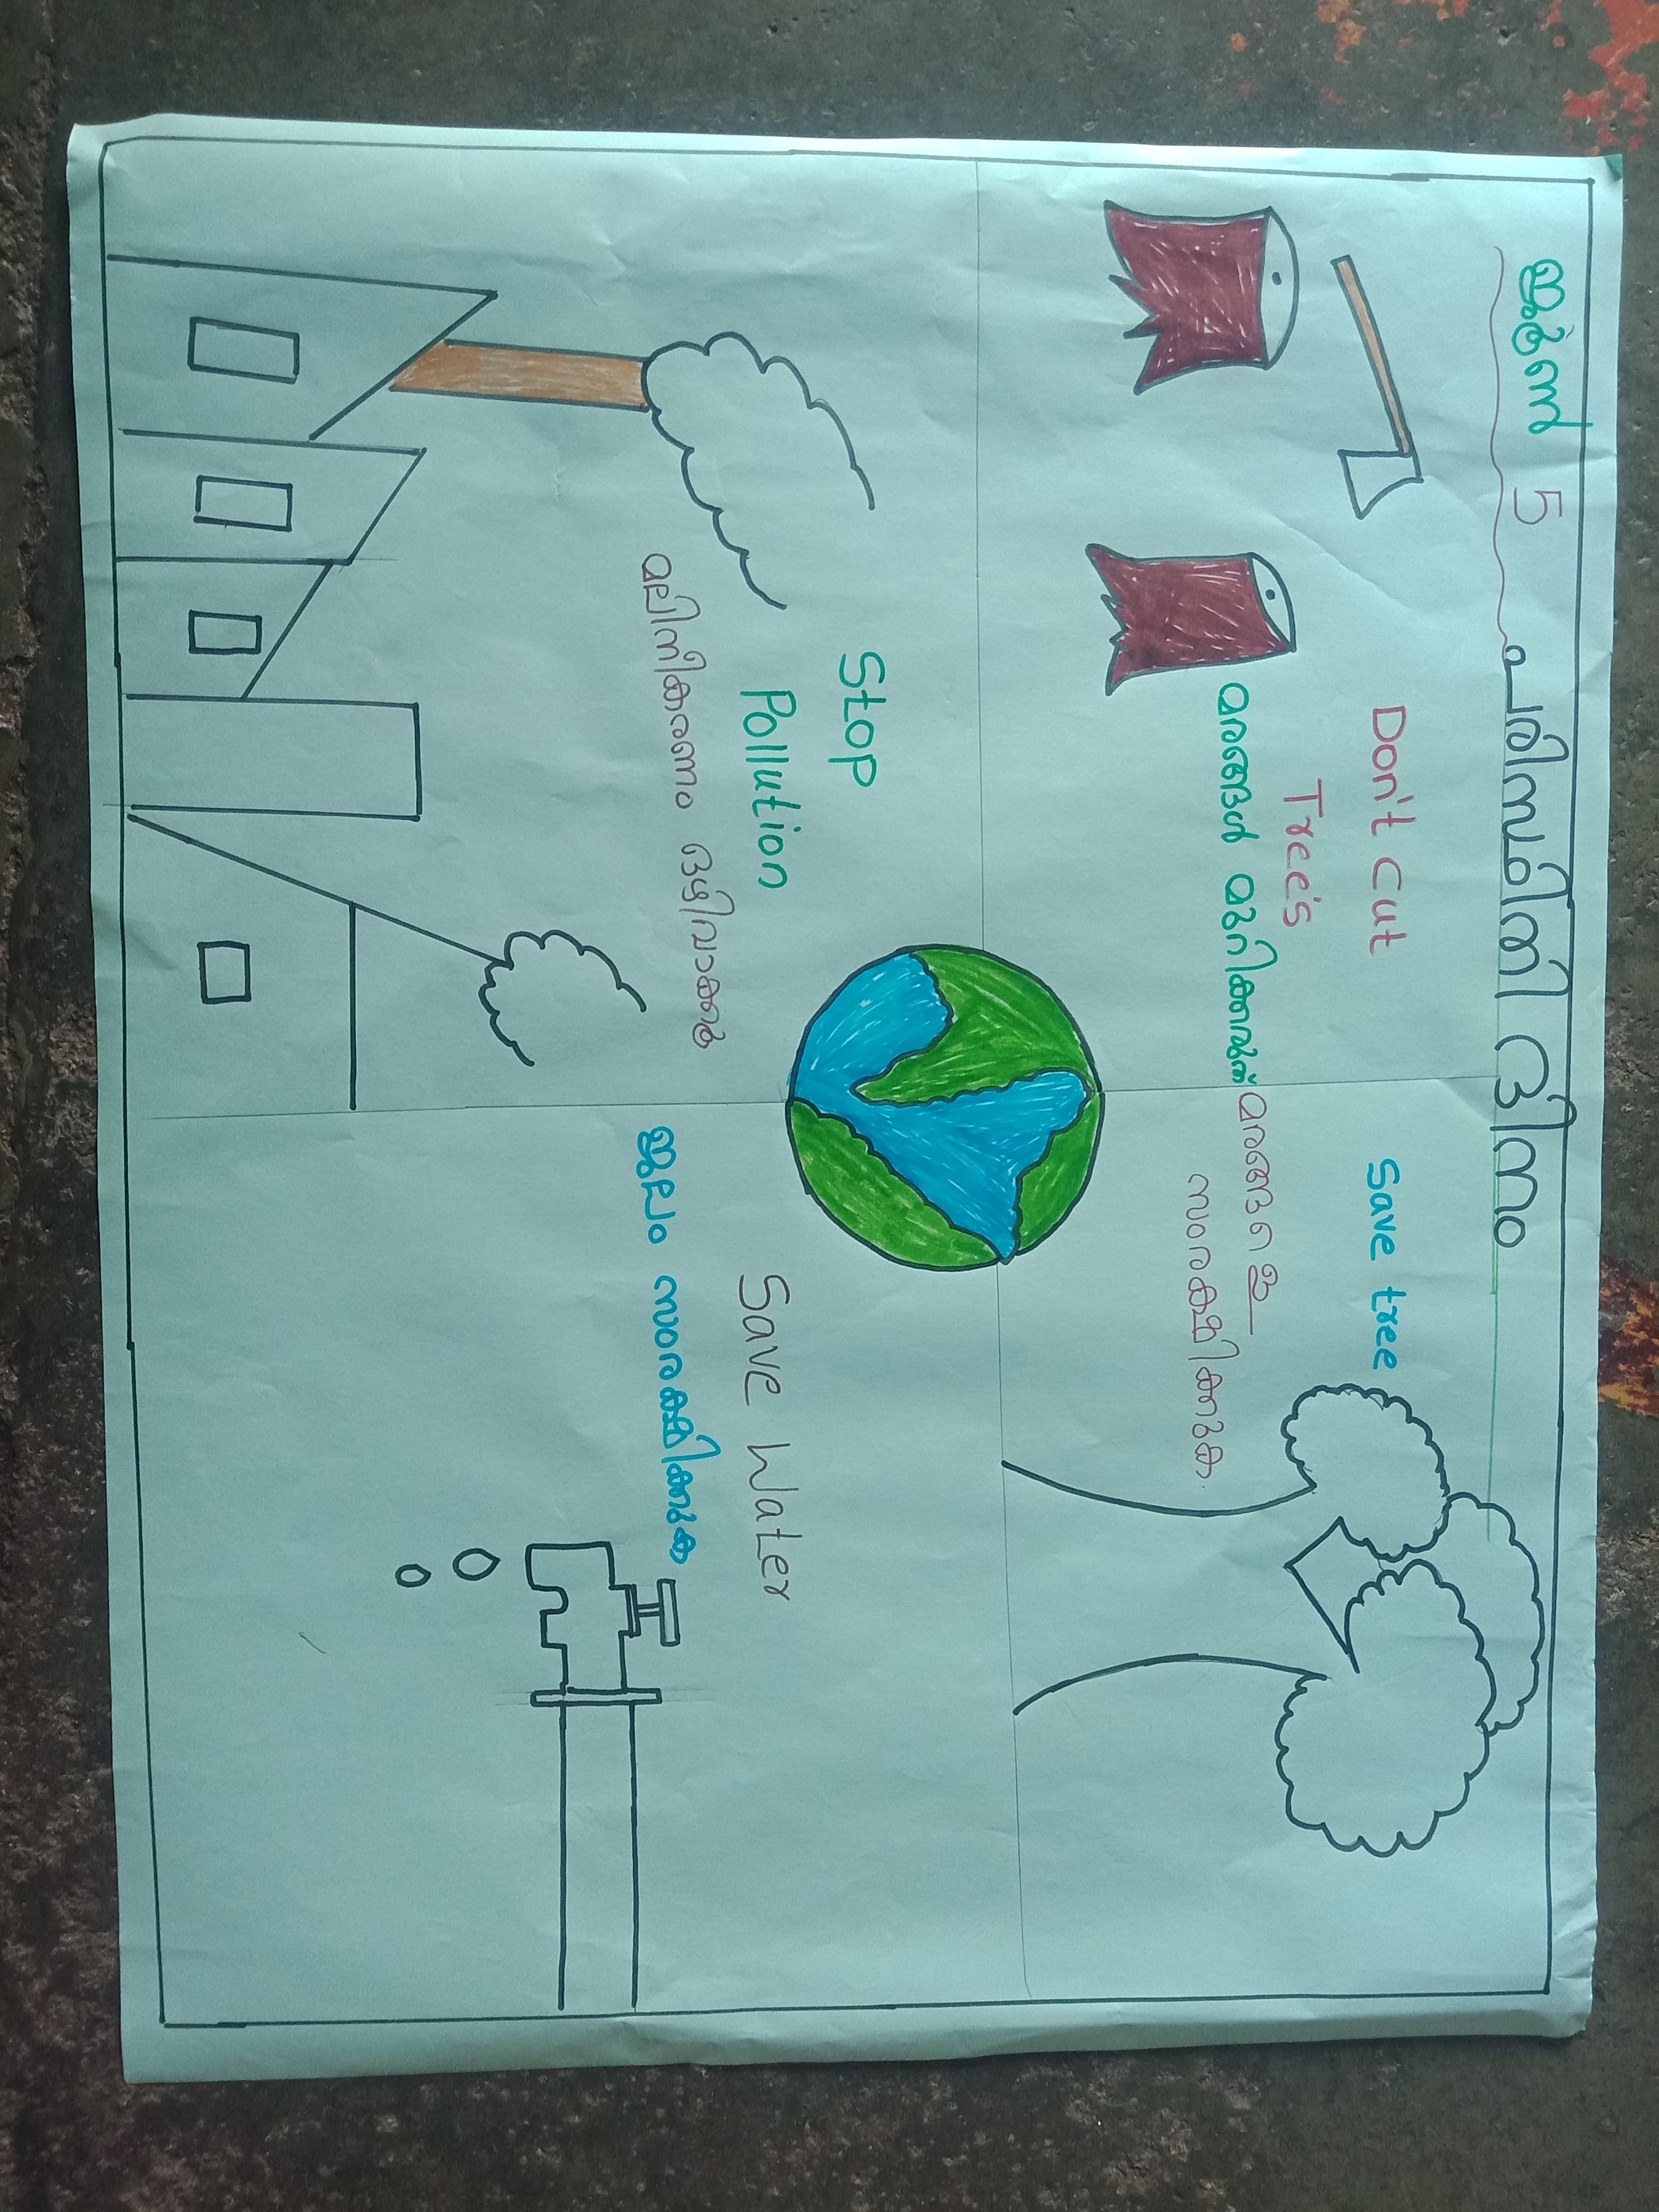 ജൂൺ 5 പരിസ്ഥിതി ദിനം
Don't cut
Tree's
മരങ്ങൾ മുറിക്കരുത്
Save tree
മരങ്ങളെ
സംരക്ഷിക്കുക
Stop
Pollution
മലിനീകരണം ഒഴിവാക്കു
Save Water
ജലം സംരക്ഷിക്കുക